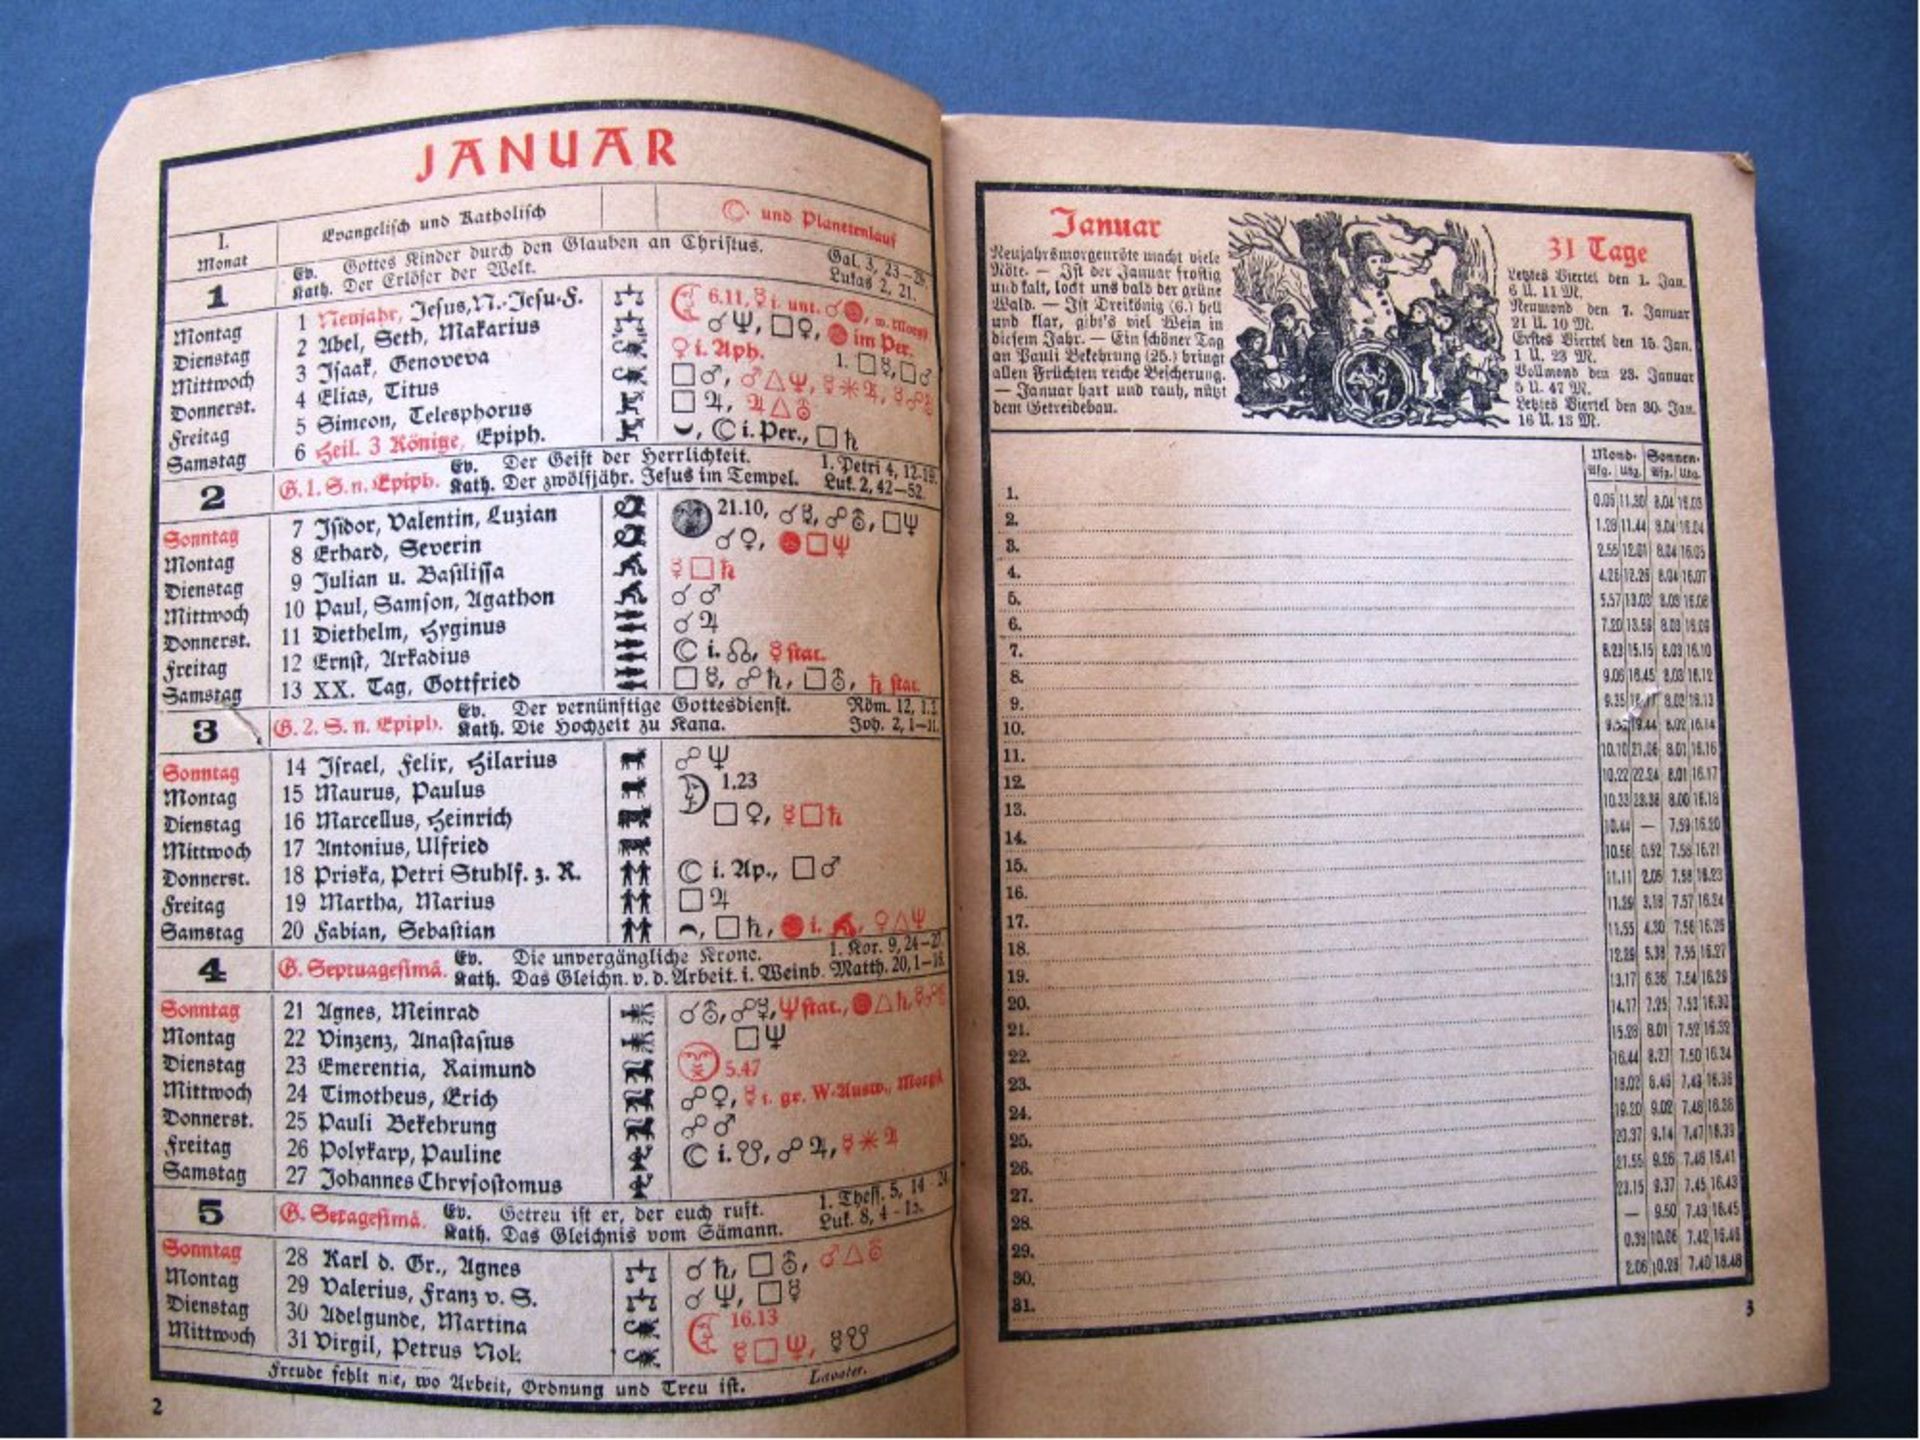 JANUAR
I. Monat
Evangelisch und Katholisch
☾ und Planetenlauf
1
Ev. Gottes Kinder durch den Glauben an Christus. Gal. 3, 23–29.
Kath. Der Erlöser der Welt. Lukas 2, 21.
Montag 1 Neujahr, Jesus, N.-Jesu-F. 6.11, ☿ i. unt. ☌
Dienstag 2 Abel, Seth, Makarius ☌♆, □♀, im Per.
Mittwoch 3 Isaak, Genoveva ♀ i. Aph. 1. □☿, □♂
Donnerst. 4 Elias, Titus □♂, ♂△♆, ☿✶♃,
Freitag 5 Simeon, Telesphorus □♃, ♃△♅
Samstag 6 Heil. 3 Könige, Epiph. ☾ i. Per., □♄
2
G. 1. S. n. Epiph.
Ev. Der Geist der Herrlichkeit. 1. Petri 4, 12-19.
Kath. Der zwölfjähr. Jesus im Tempel. Luk. 2, 42–52.
Sonntag 7 Isidor, Valentin, Luzian 21.10, ☌☿, ☍♅, □♆
Montag 8 Erhard, Severin ☌♀, □♆
Dienstag 9 Julian u. Basilissa ☿□♄
Mittwoch 10 Paul, Samson, Agathon ☌♂
Donnerst. 11 Diethelm, Hyginus ☌♃
Freitag 12 Ernst, Arkadius ☾ i. ☊, ☿ stat.
Samstag 13 XX. Tag, Gottfried □☿, ☍♄, □♅, ♄ stat.
3
G. 2. S. n. Epiph.
Ev. Der vernünftige Gottesdienst. Röm. 12, 1.
Kath. Die Hochzeit zu Kana. Joh. 2, 1–11.
Sonntag 14 Israel, Felix, Hilarius ☍♆
Montag 15 Maurus, Paulus 1.23
Dienstag 16 Marcellus, Heinrich □♀, ☿□♄
Mittwoch 17 Antonius, Ulfried
Donnerst. 18 Priska, Petri Stuhlf. z. R. ☾ i. Ap., □♂
Freitag 19 Martha, Marius □♃
Samstag 20 Fabian, Sebastian □♄, i. ♀△♆
4
G. Septuagesimä.
Ev. Die unvergängliche Krone. 1. Kor. 9, 24–27.
Kath. Das Gleichn. v. d. Arbeit. i. Weinb. Matth. 20, 1–16.
Sonntag 21 Agnes, Meinrad ☌♅, ☍☿, ♆ stat., △♄,
Montag 22 Vinzenz, Anastasius □♆
Dienstag 23 Emerentia, Raimund 5.47
Mittwoch 24 Timotheus, Erich ☍♀, ☿ i. gr. W-Ausw.,
Donnerst. 25 Pauli Bekehrung ☍♂
Freitag 26 Polykarp, Pauline ☾ i. ☋, ☍♃, ☿✶♃
Samstag 27 Johannes Chrysostomus
5
G. Sexagesimä.
Ev. Getreu ist er, der euch ruft. 1. Thess. 5, 14–24.
Kath. Das Gleichnis vom Sämann. Luk. 8, 4–15.
Sonntag 28 Karl d. Gr., Agnes ☌♄, □♅, ♂△♅
Montag 29 Valerius, Franz v. S. ☌♆, □☿
Dienstag 30 Adelgunde, Martina 16.13
Mittwoch 31 Virgil, Petrus Nol. ☿□♆, ☿☋
Freude fehlt nie, wo Arbeit, Ordnung und Treu ist. Lavater.
2
Januar
Neujahrsmorgenröte macht viele
Nöte. — Ist der Januar frostig
und kalt, lockt uns bald der grüne
Wald. — Ist Dreikönig (6.) hell
und klar, gibt's viel Wein in
diesem Jahr. — Ein schöner Tag
an Pauli Bekehrung (25.) bringt
allen Früchten reiche Bescherung.
— Januar hart und rauh, nützt
dem Getreidebau.
31 Tage
Letztes Viertel den 1. Jan.
6 U. 11 M.
Neumond den 7. Januar
21 U. 10 M.
Erstes Viertel den 15. Jan.
1 U. 23 M.
Vollmond den 23. Januar
5 U. 47 M.
Letztes Viertel den 30. Jan.
16 U. 13 M.
Mond- Sonnen-
Afg. Utg. Afg. Utg.
1.
2.
3.
4.
5.
6.
7.
8.
9.
10.
11.
12.
13.
14.
15.
16.
17.
18.
19.
20.
21.
22.
23.
24.
25.
26.
27.
28.
29.
30.
31.
0.05 11.30 8.04 16.03
1.28 11.44 8.04 16.04
2.55 12.01 8.04 16.05
4.26 12.26 8.04 16.07
5.57 13.03 8.03 16.08
7.20 13.59 8.03 16.09
8.23 15.15 8.03 16.10
9.06 16.45 8.03 16.12
9.35 8.02 16.13
19.44 8.02 16.14
10.10 21.06 8.01 16.16
10.22 22.24 8.01 16.17
10.33 23.38 8.00 16.18
10.44 — 7.59 16.20
10.56 0.52 7.58 16.21
11.11 2.05 7.58 16.23
11.29 3.18 7.57 16.24
11.55 4.30 7.56 16.25
12.29 5.38 7.55 16.27
13.17 6.36 7.54 16.29
14.17 7.25 7.53 16.30
15.28 8.01 7.52 16.32
16.44 8.27 7.50 16.34
18.02 8.46 7.49 16.36
19.20 9.02 7.48 16.38
20.37 9.14 7.47 16.39
21.55 9.26 7.46 16.41
23.15 9.37 7.45 16.43
— 9.50 7.43 16.45
0.39 10.06 7.42 16.46
2.06 10.28 7.40 16.48
3